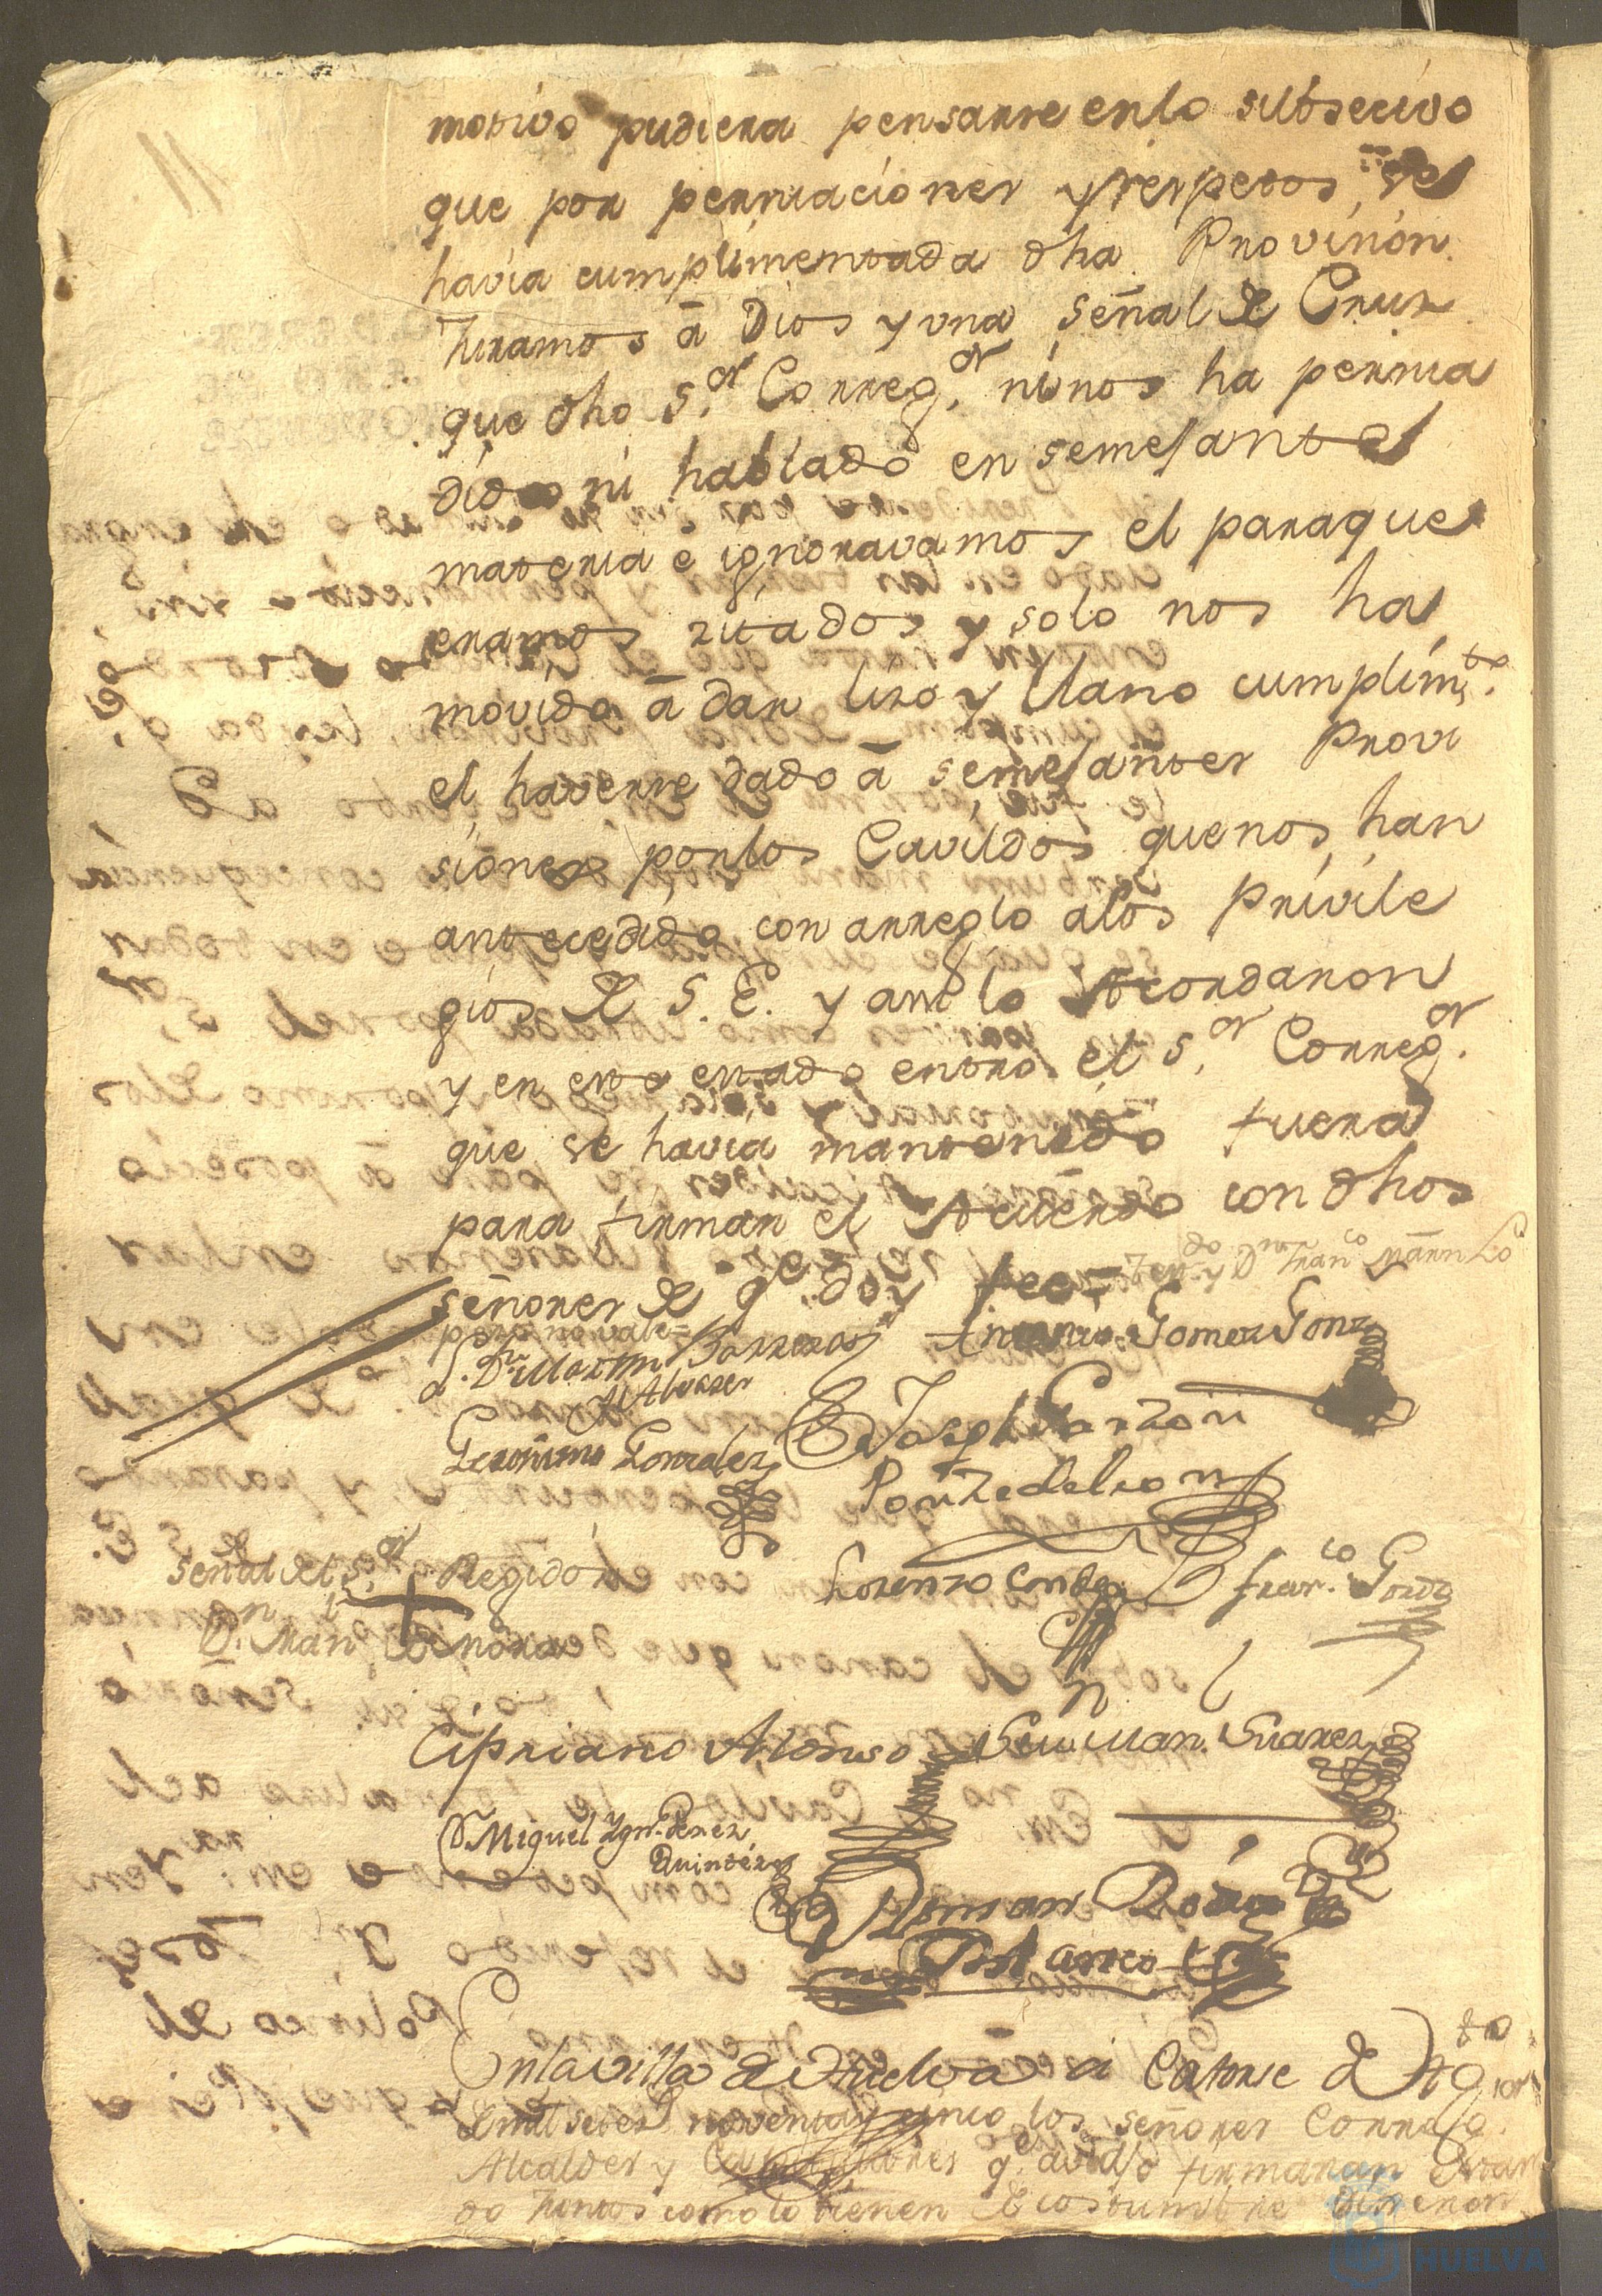 motivo pudiera pensarse enlo subsecivo
que por persuaciones y respetos se
havia cumplimentada dha Provision.
Juramos â Dios y una señal de Cruz
que dho S.or Correg.or ni nos ha persua
dido ni hablado en semejante
materia e ignoravamos el paraque
eramos zitados y solo nos ha
movido â dar liso y llano cumplim.to
el haverse dado â semejantes Provi
siones por los Cavildos que nos han
antecedido con arreglo alos privile
gios de S. E. y assi lo Acordaron
y en este estado entro el S.or Correg.or
que se havia mantenido fuera
para firmar el Acuerdo con dhos
señores de q.e doy fee=
Fran.co Marin
por no vale=
D.n Martin Barreras
Al Alvarez
Francisco Gomez Gonz
Geronimo Gonzalez
Joseph Garzon
Ponze de Leon
Señal del S.or Regidor
D.n Man.l de Mora
Lorenzo
Fran.co Gonz
Cipriano Alonso
Man. Suarez
D.n Miguel Ign.o Perez
Quintero
Roman
Polanco
En la villa de Huelva â Catorse de Ag.to
mil setez.s noventa y cinco los señores Correg.or
Alcaldes y Capitulares q.e avajo firmaran Estan
do Juntos como lo tienen de costumbre Dixeron
HUELVA